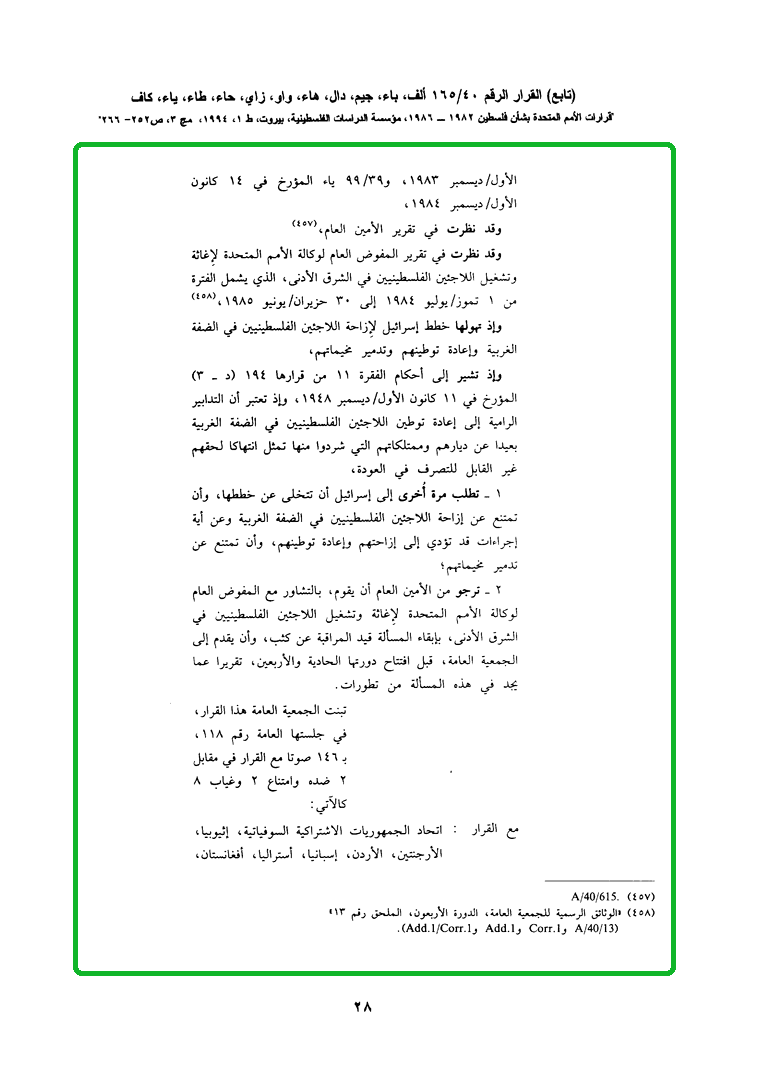 (تابع) القرار الرقم ١٦٥/٤٠ ألف، باء، جيم، دال، هاء، واو، زاي، حاء، طاء، ياء، كاف
"قرارات الأمم المتحدة بشأن فلسطين ١٩٨٢ ــ ١٩٨٦، مؤسسة الدراسات الفلسطينية، بيروت، ط ١، ١٩٩٤، مج ٣، ص٢٥٢- ٢٦٦"
الأول/ديسمبر ١٩٨٣، و٩٩/٣٩ ياء المؤرخ في ١٤ كانون
الأول/ديسمبر ١٩٨٤،
وقد نظرت في تقرير الأمين العام،(٤٥٧)
وقد نظرت في تقرير المفوض العام لوكالة الأمم المتحدة لإغاثة
وتشغيل اللاجئين الفلسطينيين في الشرق الأدنى، الذي يشمل الفترة
من ١ تموز/يوليو ١٩٨٤ إلى ٣٠ حزيران/يونيو ١٩٨٥،(٤٥٨)
وإذ تهولها خطط إسرائيل لإزاحة اللاجئين الفلسطينيين في الضفة
الغربية وإعادة توطينهم وتدمير مخيماتهم،
وإذ تشير إلى أحكام الفقرة ١١ من قرارها ١٩٤ (د ـ ٣)
المؤرخ في ١١ كانون الأول/ديسمبر ١٩٤٨، وإذ تعتبر أن التدابير
الرامية إلى إعادة توطين اللاجئين الفلسطينيين في الضفة الغربية
بعيدا عن ديارهم وممتلكاتهم التي شردوا منها تمثل انتهاكا لحقهم
غير القابل للتصرف في العودة،
١ ـ تطلب مرة أُخرى إلى إسرائيل أن تتخلى عن خططها، وأن
تمتنع عن إزاحة اللاجئين الفلسطينيين في الضفة الغربية وعن أية
إجراءات قد تؤدي إلى إزاحتهم وإعادة توطينهم، وأن تمتنع عن
تدمير مخيماتهم؛
٢ ـ ترجو من الأمين العام أن يقوم، بالتشاور مع المفوض العام
لوكالة الأمم المتحدة لإغاثة وتشغيل اللاجئين الفلسطينيين في
الشرق الأدنى، بإبقاء المسألة قيد المراقبة عن كثب، وأن يقدم إلى
الجمعية العامة، قبل افتتاح دورتها الحادية والأربعين، تقريرا عما
يجد في هذه المسألة من تطورات.
تبنت الجمعية العامة هذا القرار،
في جلستها العامة رقم ١١٨،
بـ ١٤٦ صوتا مع القرار في مقابل
٢ ضده وامتناع ٢ وغياب ٨
كالآتي:
مع القرار : اتحاد الجمهوريات الاشتراكية السوفياتية، إثيوبيا،
الأرجنتين، الأردن، إسبانيا، أستراليا، أفغانستان،
(٤٥٧) A/40/615.
(٤٥٨) «الوثائق الرسمية للجمعية العامة، الدورة الأربعون، الملحق رقم ١٣»
(A/40/13 وCorr.1 وAdd.1 وAdd.1/Corr.1).
٢٨